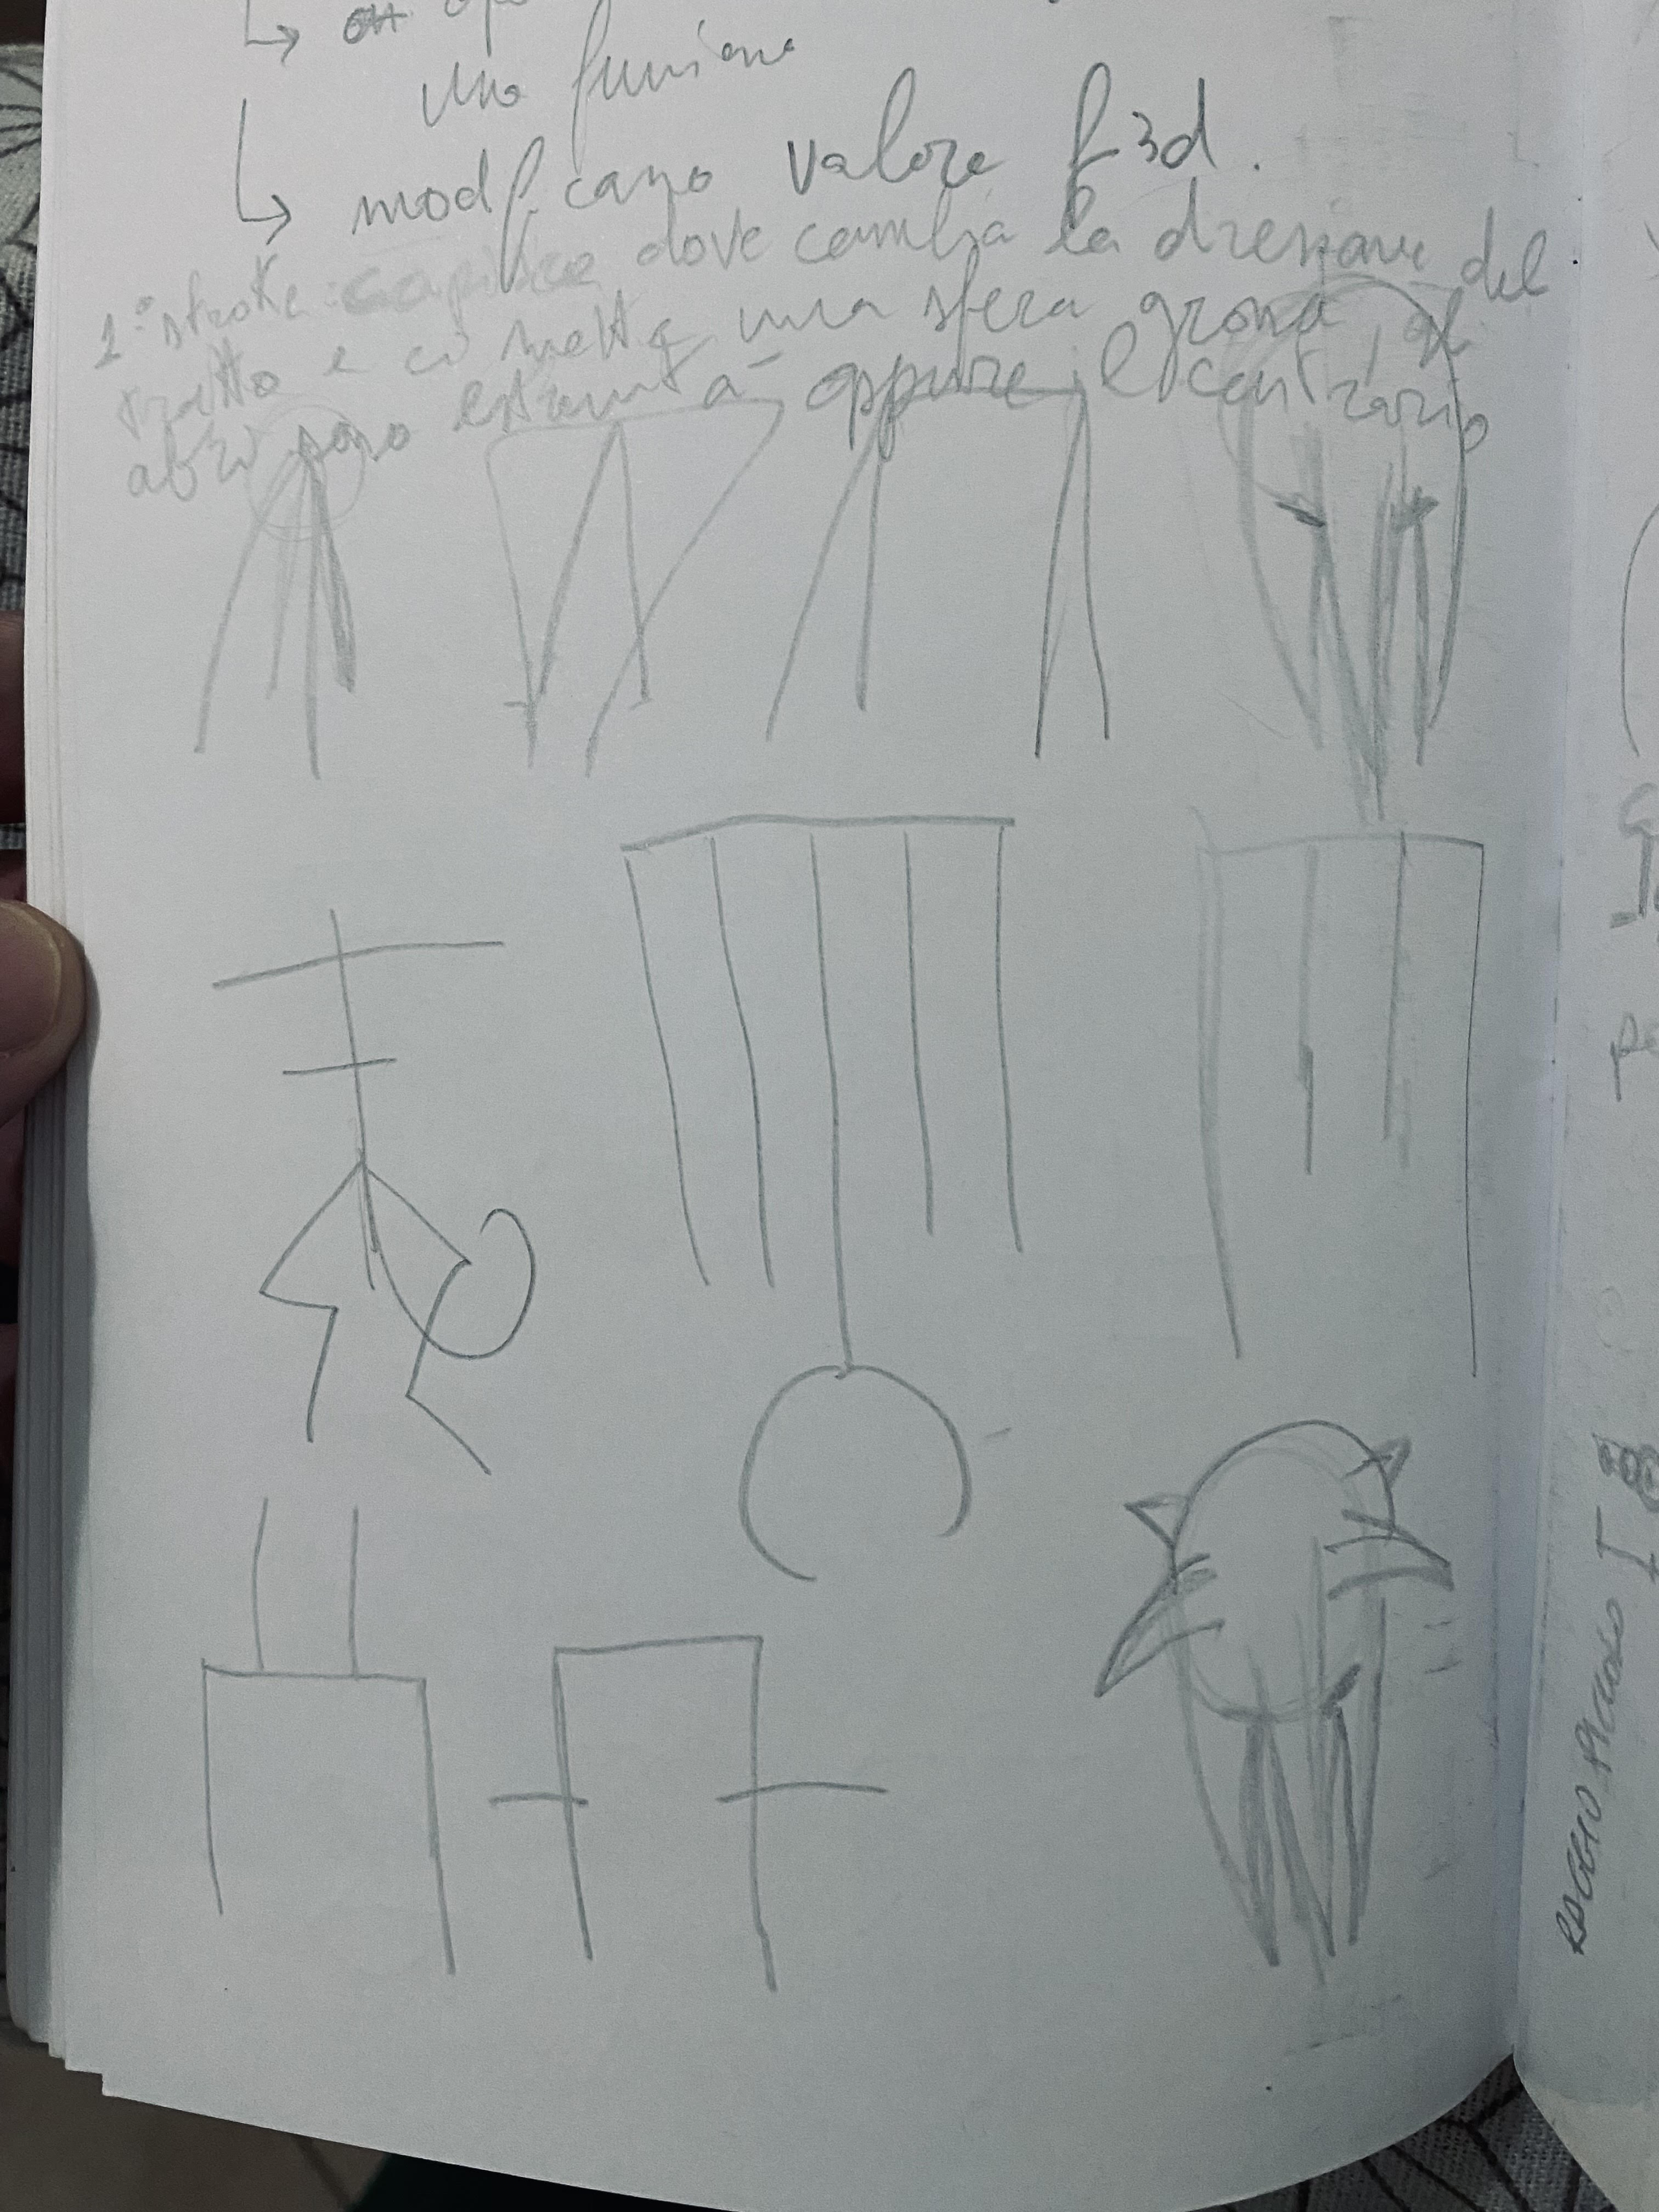 una funzione
↳ modificano valore f3d.
1° stroke: capisce dove cambia la direzione del
tratto e ci mette una sfera grossa, gli
altri sono estremità oppure il contrario
RAGGIO PICCOLO